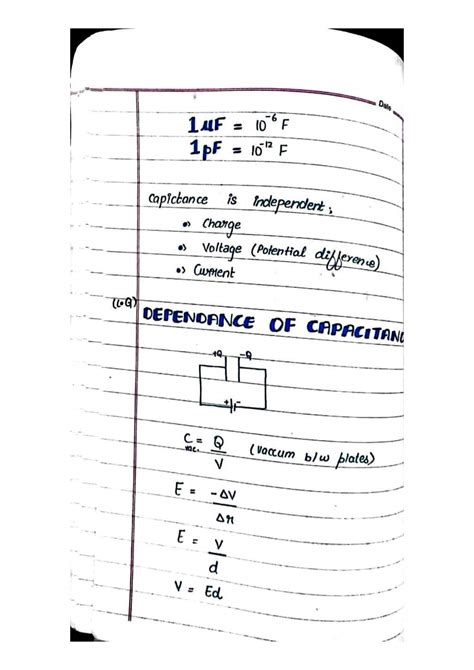 Date
1μF = 10⁻⁶ F
1pF = 10⁻¹² F
Capictance is independent;
•) Charge
•) Voltage (Potential difference)
•) Current
(LQ) DEPENDANCE OF CAPACITANC
+Q -Q
+ -
C vac. = Q/V (vaccum b/w plates)
E = -ΔV/Δr
E = V/d
V = Ed